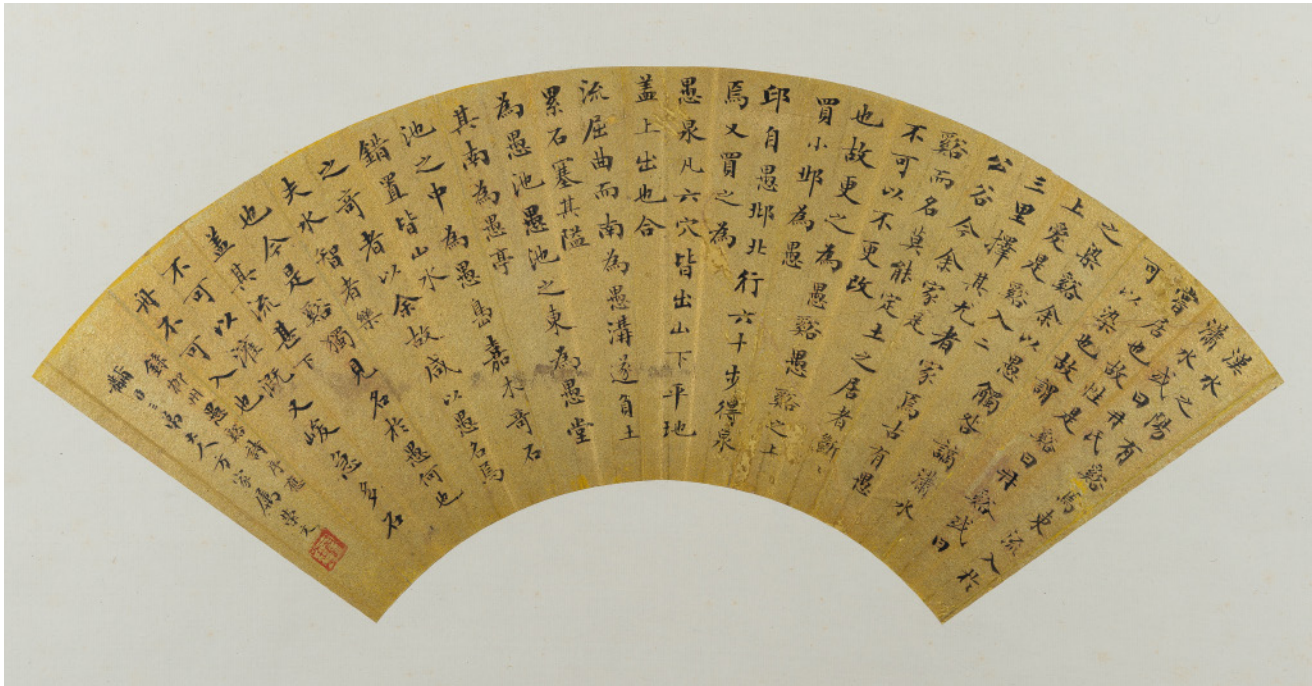 漢水之陽有谿焉東流入於
瀟水或曰冉氏
嘗居也故姓是谿曰冉谿或曰
可以染也故謂
之染谿余以愚觸咎謫瀟水
上愛是谿入二
三里擇其尤者家焉古有愚
公谷今余家是
谿而名莫能定土之居者齗〻
不可以不更改
也故更之為愚谿愚谿之上
買小邱為愚
邱自愚邱北行六十步得泉
焉又買之為
愚泉凡六穴皆出山下平地
盖上出也合
流屈曲而南為愚溝遂負土
累石塞其隘
為愚池愚池之東為愚堂
其南為愚亭
池之中為愚島嘉木奇石
錯置皆山水
之奇者以余故咸以愚名焉
夫水智者樂
也今是谿獨見名於愚何也
盖其流甚下
不可以灌溉又峻急多石
舟不可入也
錄柳州愚谿詩序應
三弟大人方家屬